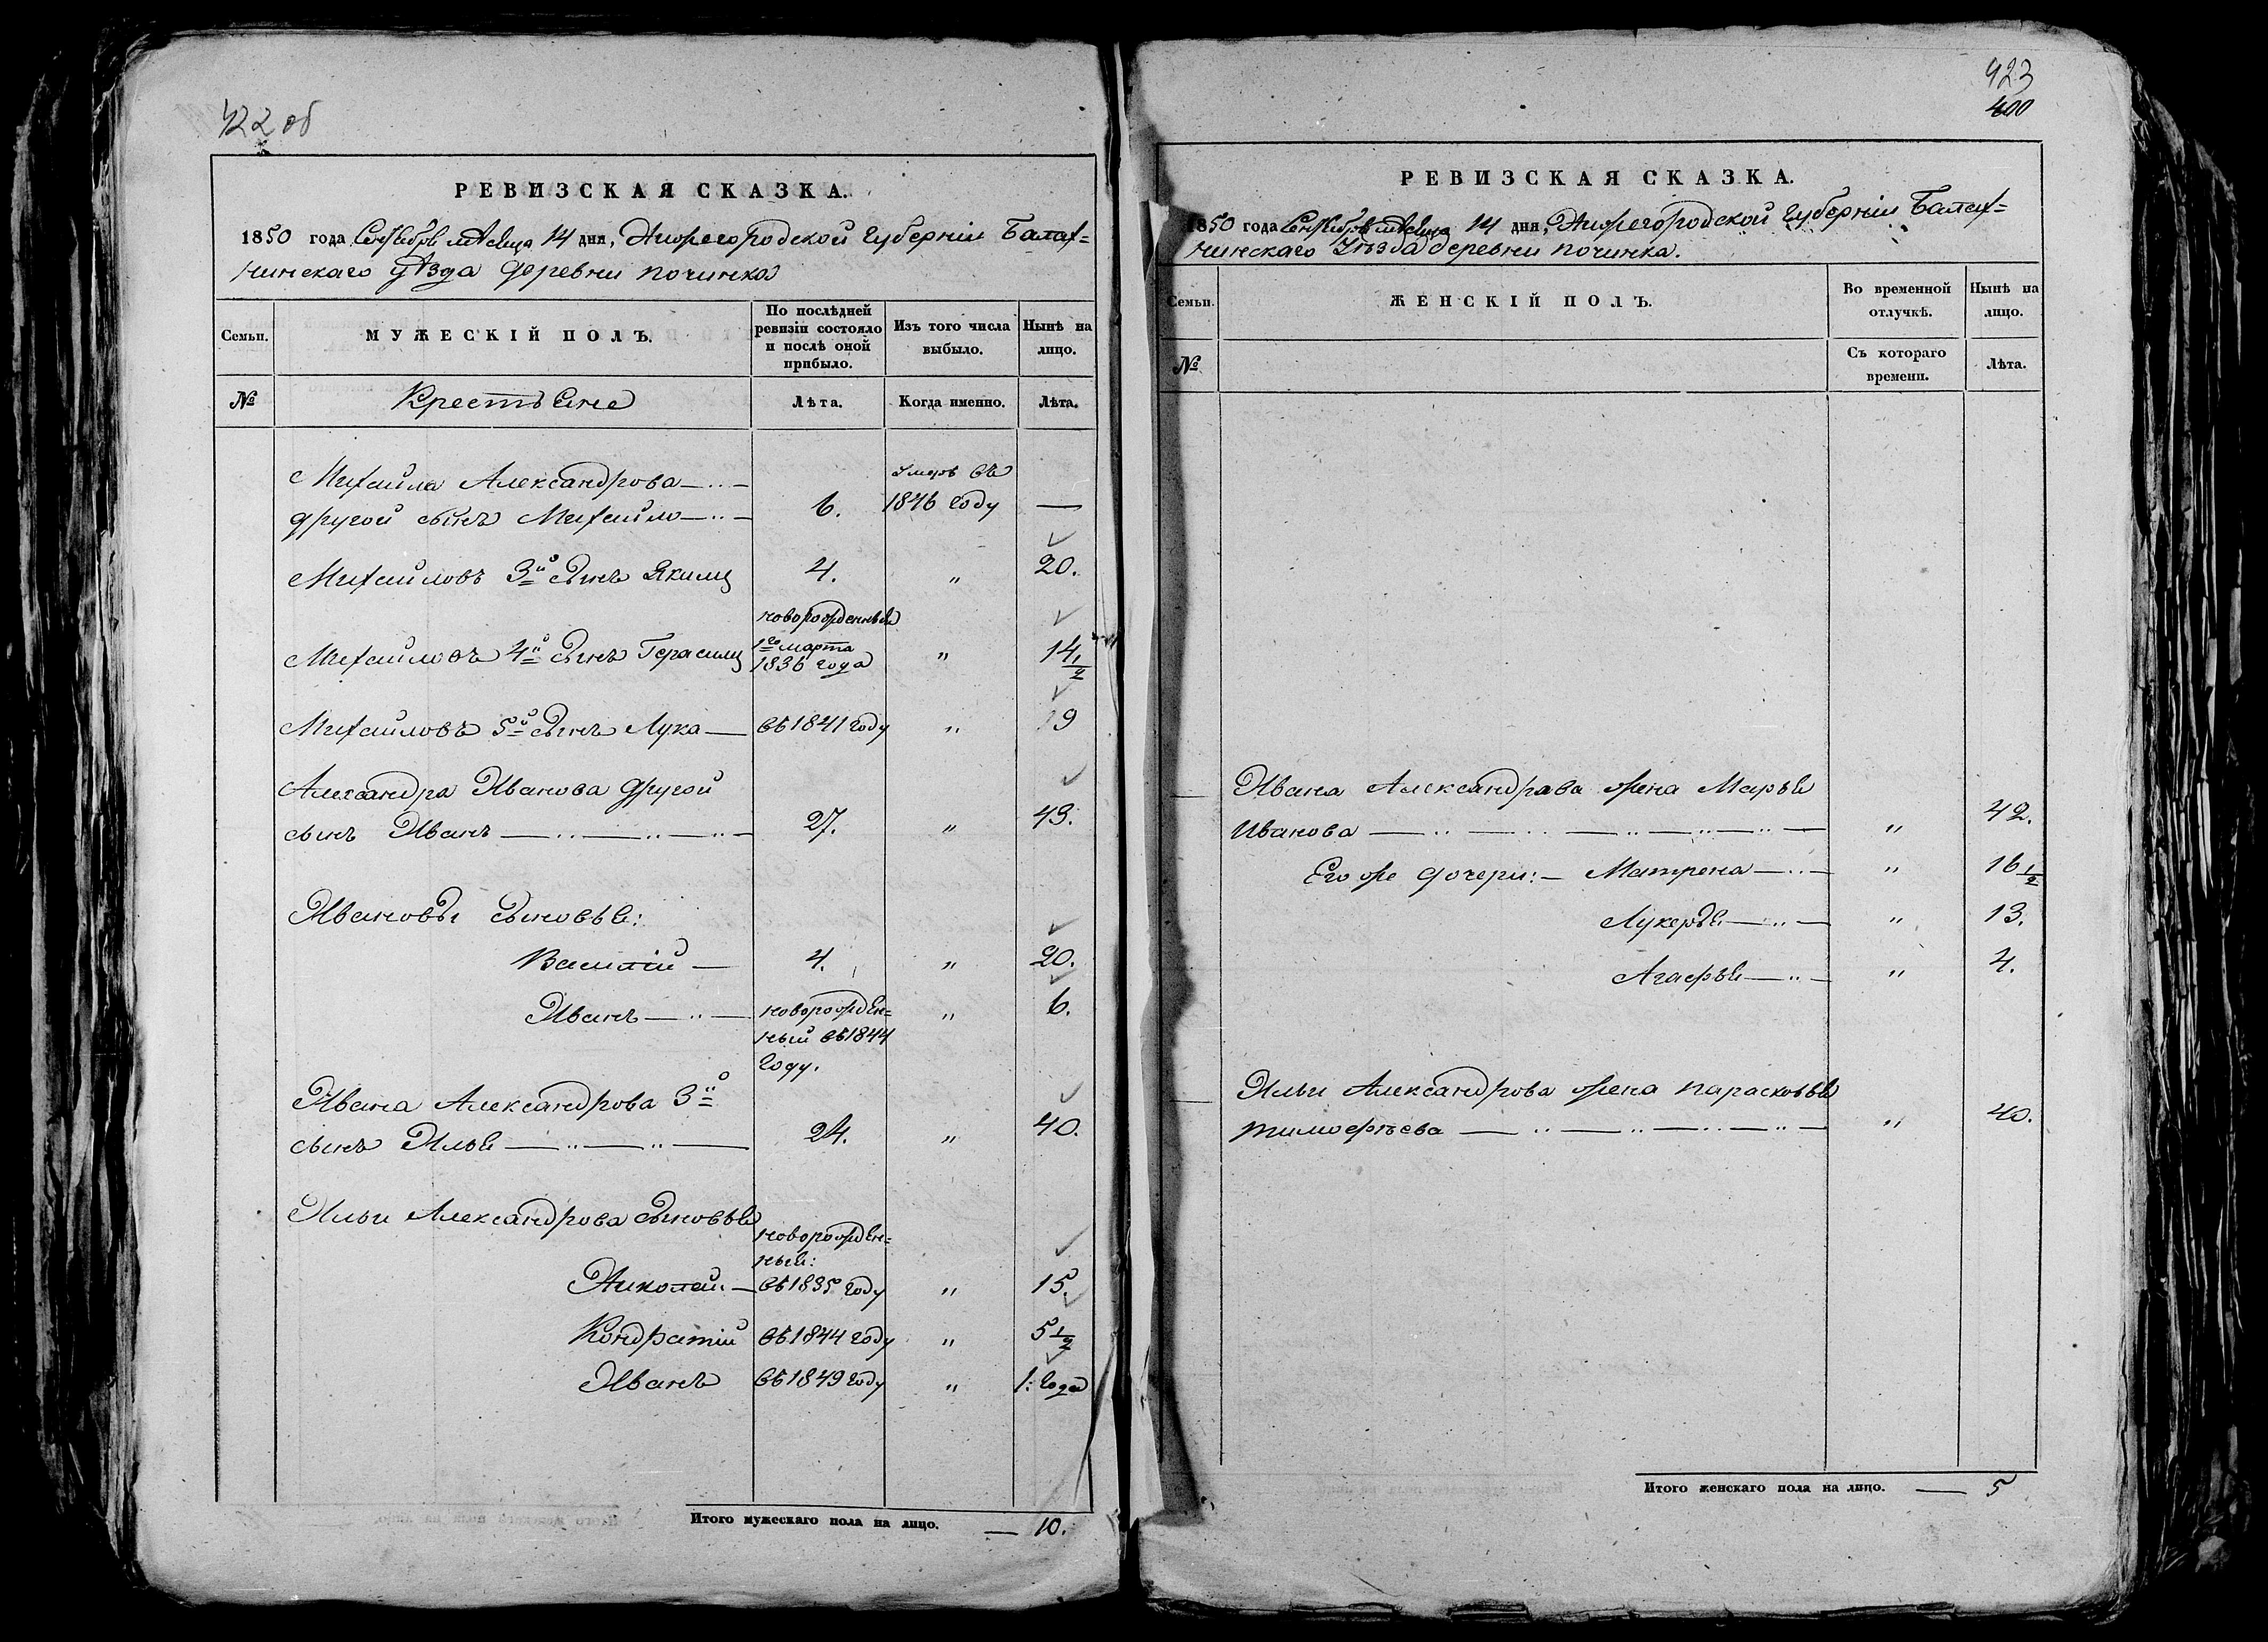 422 об
РЕВИЗСКАЯ СКАЗКА.
1850 года Сентября мѣсяца 14 дня, Нижегородской Губерніи Балах=
нинскаго уѣзда деревни починка
Семьи.
МУЖЕСКІЙ ПОЛЪ.
По послѣдней ревизіи состояло и послѣ оной прибыло.
Изъ того числа выбыло.
Нынѣ на лицо.
№
Крестьяне
Лѣта.
Когда именно.
Лѣта.
Михаила Александрова —..— умеръ въ
другой сынъ Михайло —..— 6. 1846 году —
Михайловъ 3й сынъ Якимъ 4. " 20.
новорожденные
Михайловъ 4й сынъ Герасимъ 1го марта 1836 года " 14 1/2
Михайловъ 5й сынъ Лука — въ 1841 году " 9
Александра Иванова другой
сынъ Иванъ —..—..—..— 27. " 43.
Ивановы сыновья:
Василій — 4. " 20.
Иванъ —..— новорожден= " 6.
ный въ 1844
году.
Ивана Александрова 3й
сынъ Илья —..—..— 24. " 40.
Ильи Александрова сыновья
новорожден=
ныя:
Николай — въ 1835 году " 15.
Кондратій въ 1844 году " 5 1/2
Иванъ въ 1849 году " 1: года
Итого мужескаго пола на лицо. — 10.
423
400
РЕВИЗСКАЯ СКАЗКА.
1850 года Сентября мѣсяца 14 дня, Нижегородской Губерніи Балах=
нинскаго Уѣзда деревни починка.
Семьи.
ЖЕНСКІЙ ПОЛЪ.
Во временной отлучкѣ.
Нынѣ на лицо.
№
Съ котораго времени.
Лѣта.
— Ивана Александрава жена Марья
Иванова —..—..—..—..—..— " 42.
Его же дочери: — Матрена —..— " 16 1/2
Лукерья —..— " 13.
Агафья —..— " 4.
— Ильи Александрова жена парасковья
тимофѣева —..—..—..—..— " 40.
Итого женскаго пола на лицо. — 5